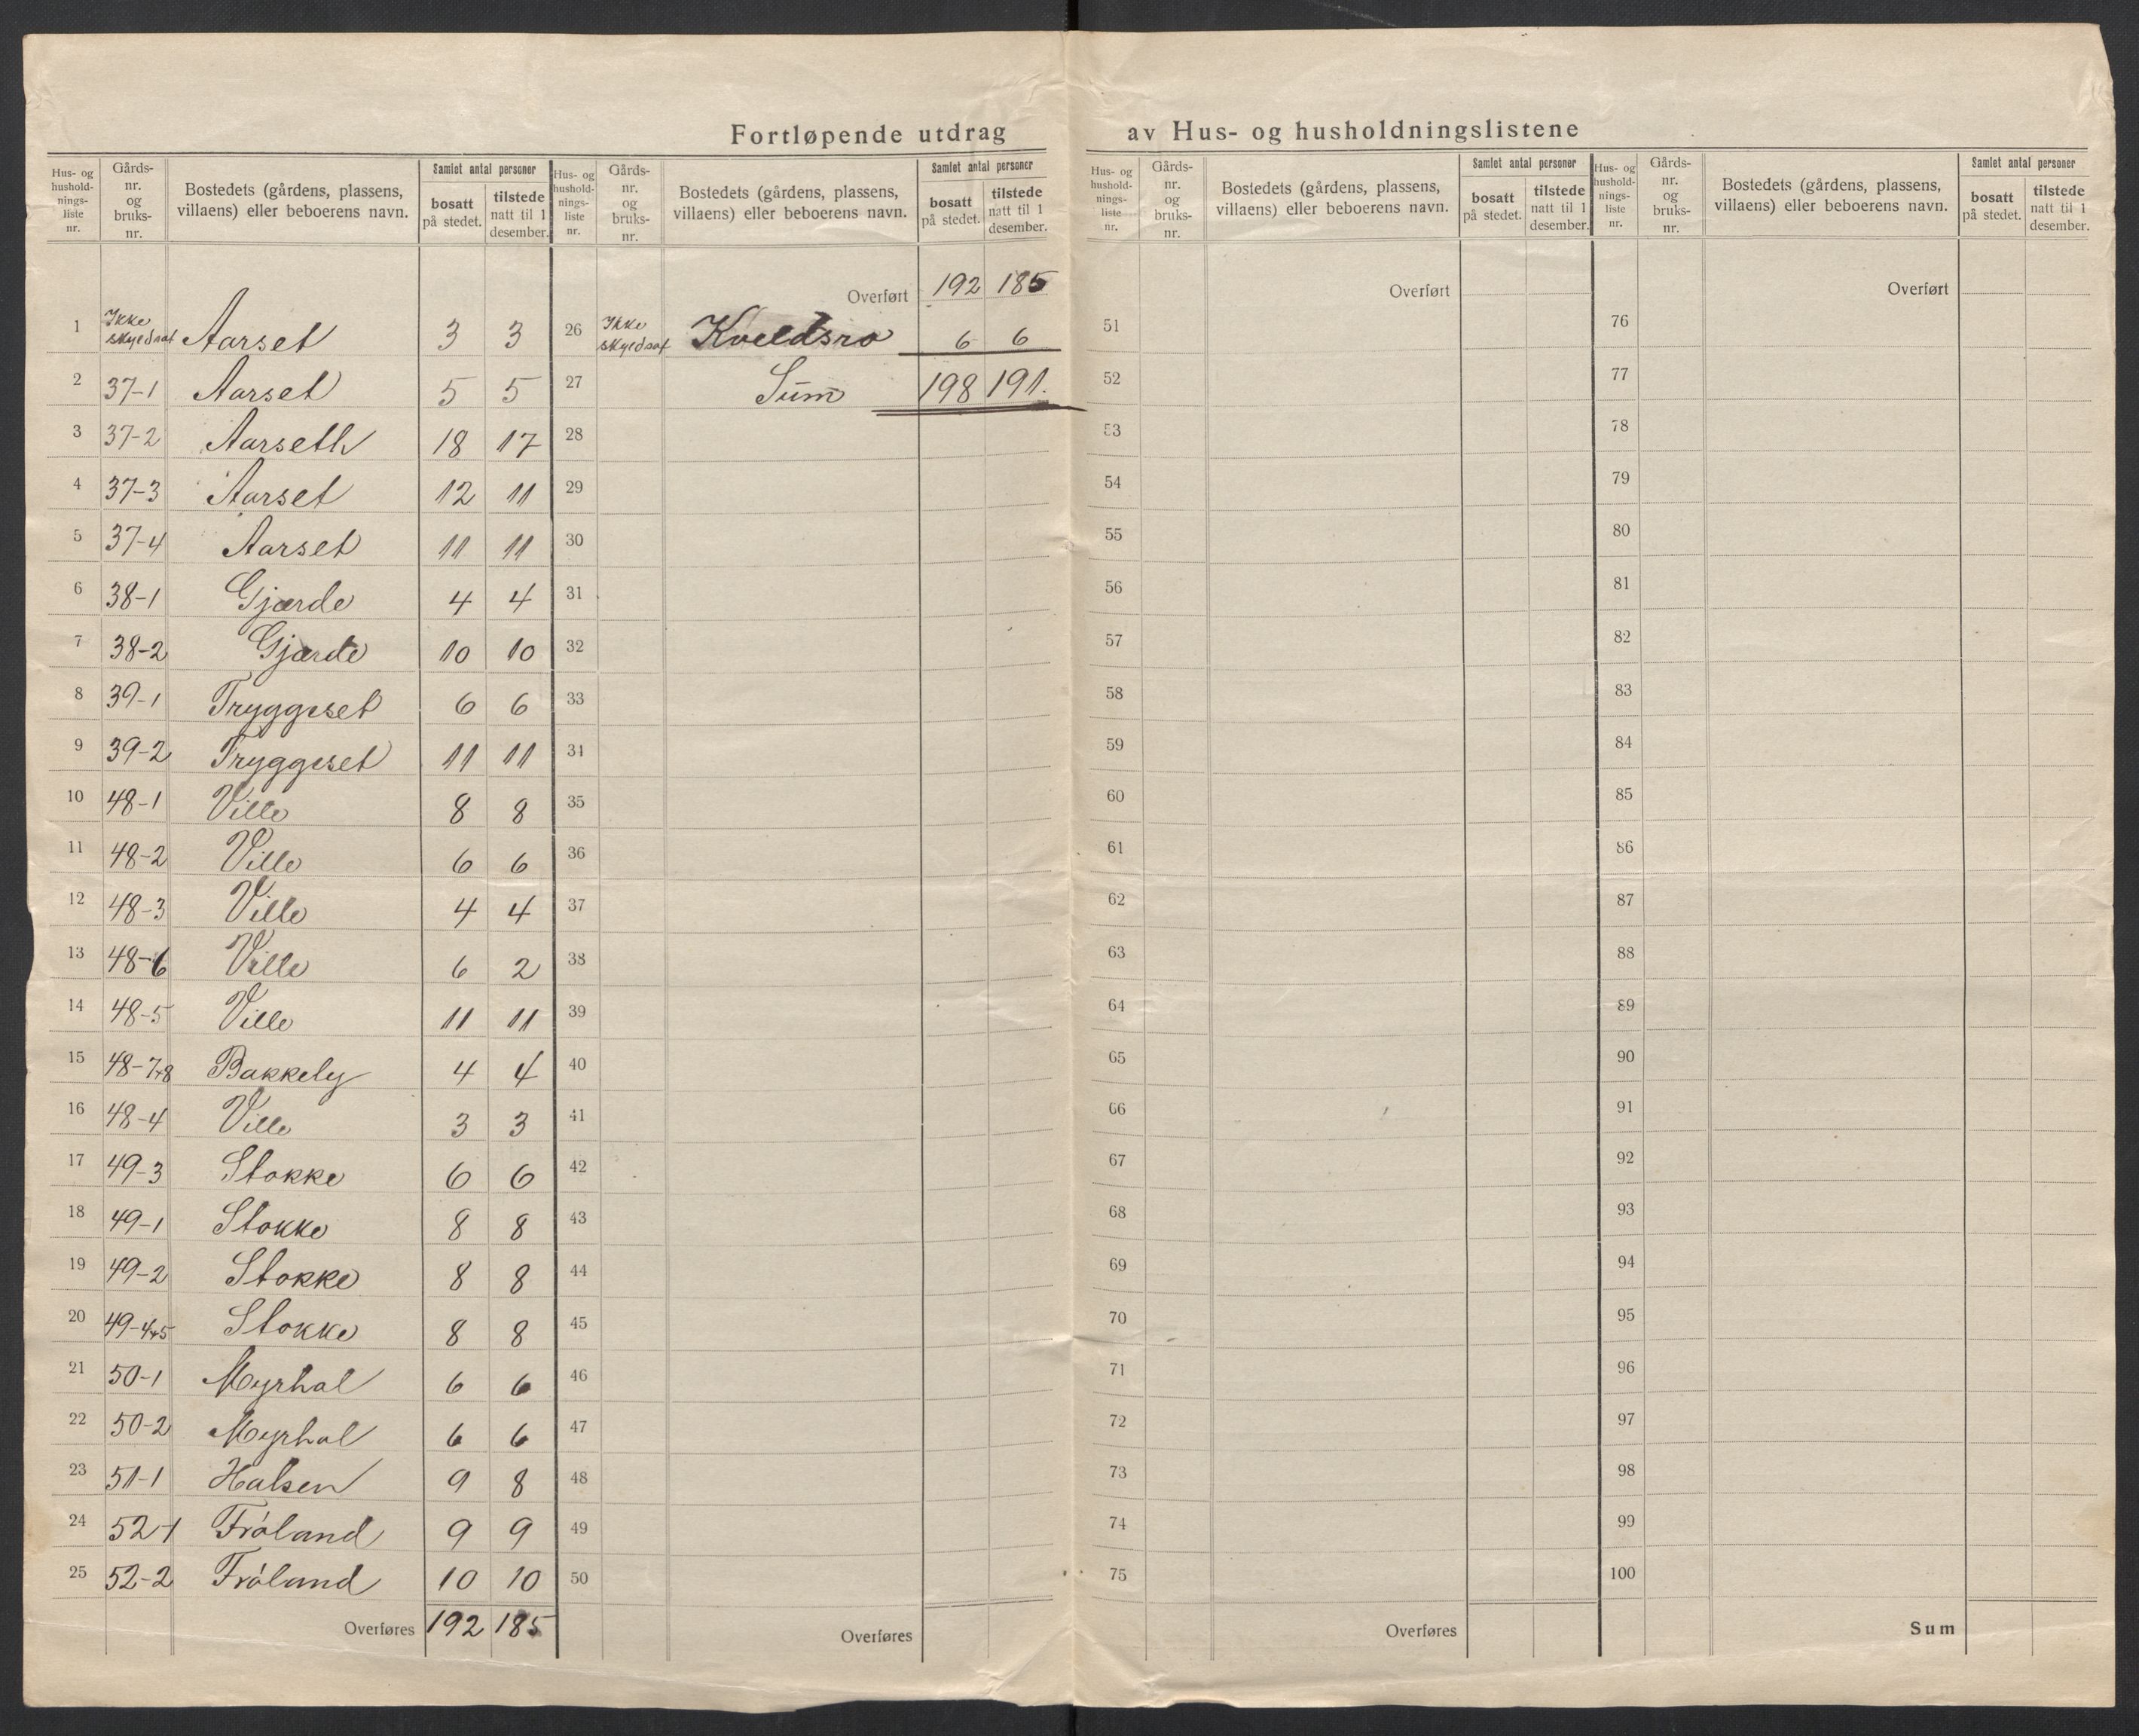 Fortløpende utdrag av Hus- og husholdningslistene
Hus- og hushold-nings-liste nr. | Gårds-nr. og bruks-nr. | Bostedets (gårdens, plassens, villaens) eller beboerens navn. | Samlet antal personer | bosatt på stedet. | tilstede natt til 1 desember.
1 Ikke skyldsat Aarset 3 3
2 37-1 Aarset 5 5
3 37-2 Aarseth 18 17
4 37-3 Aarset 12 11
5 37-4 Aarset 11 11
6 38-1 Gjærde 4 4
7 38-2 Gjærde 10 10
8 39-1 Tryggeset 6 6
9 39-2 Tryggeset 11 11
10 48-1 Ville 8 8
11 48-2 Ville 6 6
12 48-3 Ville 4 4
13 48-6 Ville 6 2
14 48-5 Ville 11 11
15 48-7+8 Bakkely 4 4
16 48-4 Ville 3 3
17 49-3 Stokke 6 6
18 49-1 Stokke 8 8
19 49-2 Stokke 8 8
20 49-4+5 Stokke 8 8
21 50-1 Myrhol 6 6
22 50-2 Myrhol 6 6
23 51-1 Halsen 9 8
24 52-1 Fróland 9 9
25 52-2 Fróland 10 10
Overføres 192 185
Hus- og hushold-nings-liste nr. | Gårds-nr. og bruks-nr. | Bostedets (gårdens, plassens, villaens) eller beboerens navn. | Samlet antal personer | bosatt på stedet. | tilstede natt til 1 desember.
Overført 192 185
26 Ikke skyldsat Kveldsro 6 6
27 Sum 198 191.
28
29
30
31
32
33
34
35
36
37
38
39
40
41
42
43
44
45
46
47
48
49
50
Overføres
Hus- og hushold-nings-liste nr. | Gårds-nr. og bruks-nr. | Bostedets (gårdens, plassens, villaens) eller beboerens navn. | Samlet antal personer | bosatt på stedet. | tilstede natt til 1 desember.
Overført
51
52
53
54
55
56
57
58
59
60
61
62
63
64
65
66
67
68
69
70
71
72
73
74
75
Overføres
Hus- og hushold-nings-liste nr. | Gårds-nr. og bruks-nr. | Bostedets (gårdens, plassens, villaens) eller beboerens navn. | Samlet antal personer | bosatt på stedet. | tilstede natt til 1 desember.
Overført
76
77
78
79
80
81
82
83
84
85
86
87
88
89
90
91
92
93
94
95
96
97
98
99
100
Sum